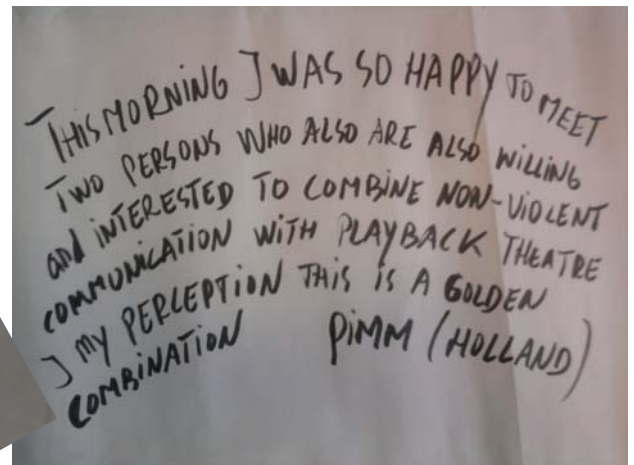 THIS MORNING I WAS SO HAPPY TO MEET
TWO PERSONS WHO ALSO ARE ALSO WILLING
and INTERESTED TO COMBINE NON-VIOLENT
COMMUNICATION WITH PLAYBACK THEATRE
I MY PERCEPTION THIS IS A GOLDEN
COMBINATION PIMM (HOLLAND)